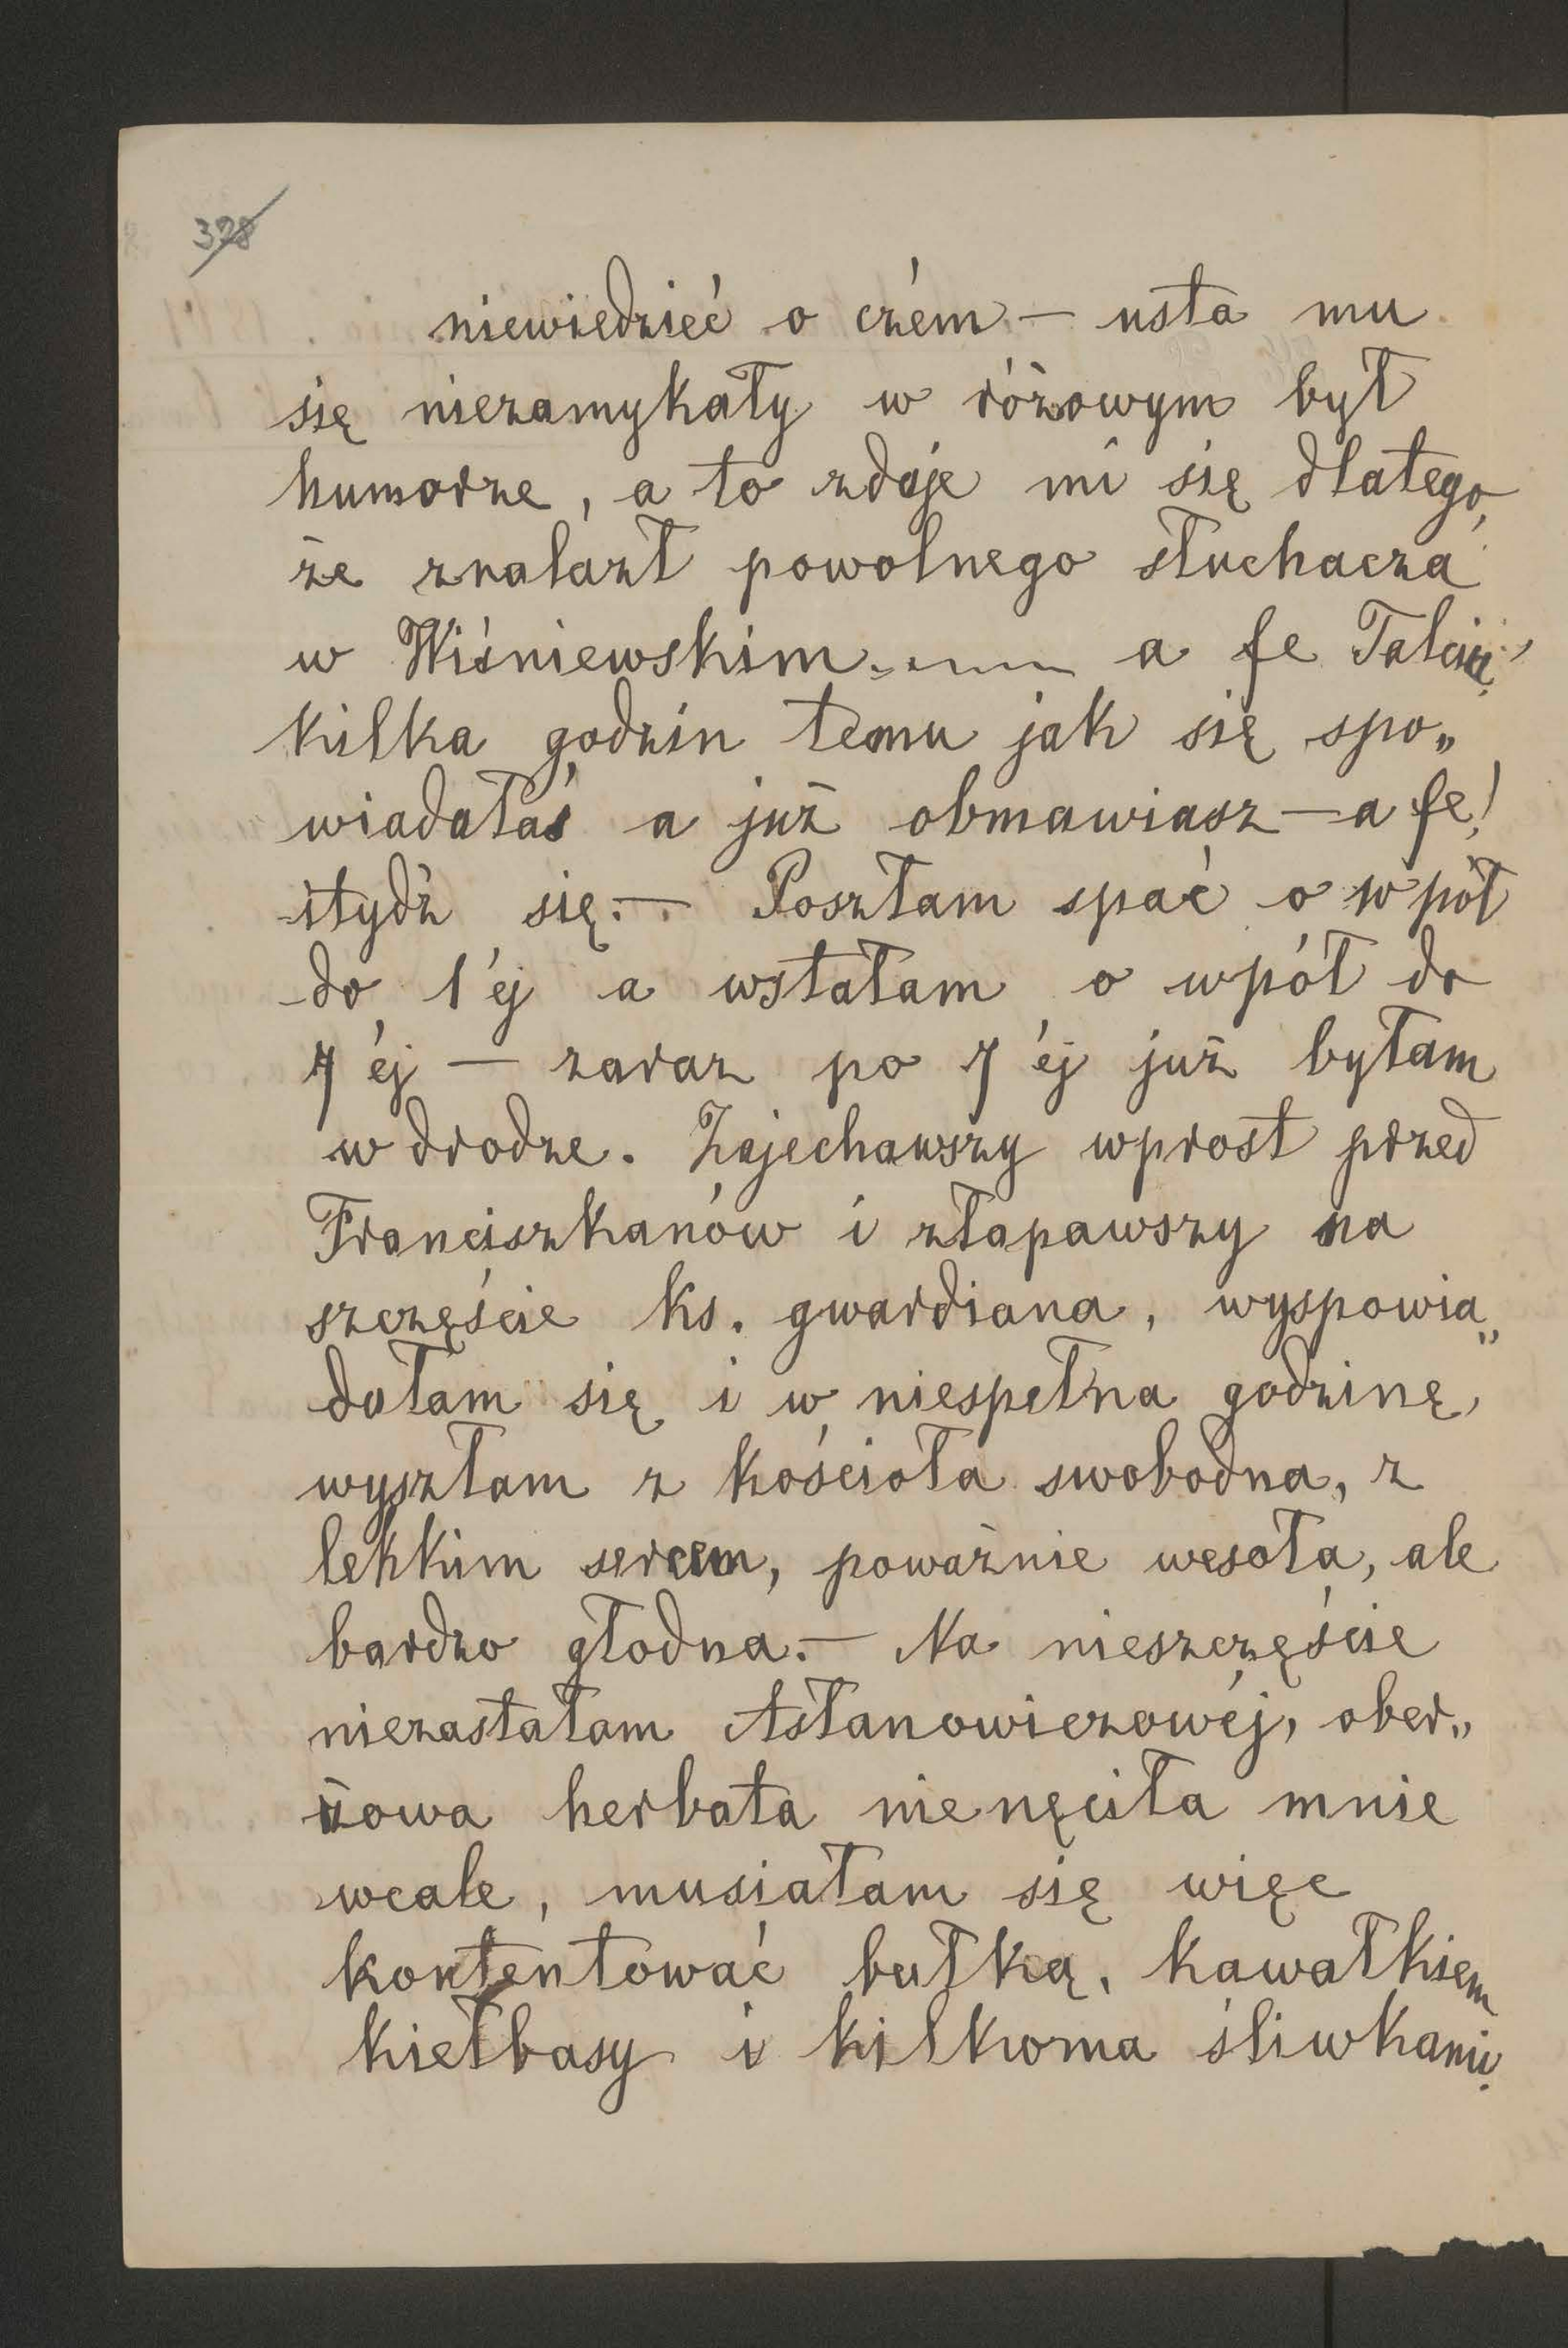 328
niewiedzieć o czém — usta mu
się niezamykały w różowym był
humorze, a to zdaje mi się dlatego,
że znalazł powolnego słuchacza
w Wiśniewskim ..... a fe
kilka godzin temu jak się spo„
wiadałaś a już obmawiasz — a fe!
stydź się. — Poszłam spać o wpół
do 1 éj a wstałam o wpół do
7 éj — zaraz po 7 éj już byłam
w drodze. Zajechawszy wprost przed
Franciszkanów i złapawszy na
szczęście ks. gwardiana, wyspowia„
dałam się i w niespełna godzinę,
wyszłam z kościoła swobodna, z
lekkim sercem, poważnie wesoła, ale
bardzo głodna. — Na nieszczęście
niezastałam Asłanowiczowéj, ober„
żowa herbata nienęciła mnie
wcale, musiałam się więc
kontentować bułką, kawałkiem
kiełbasy i kilkoma śliwkami.